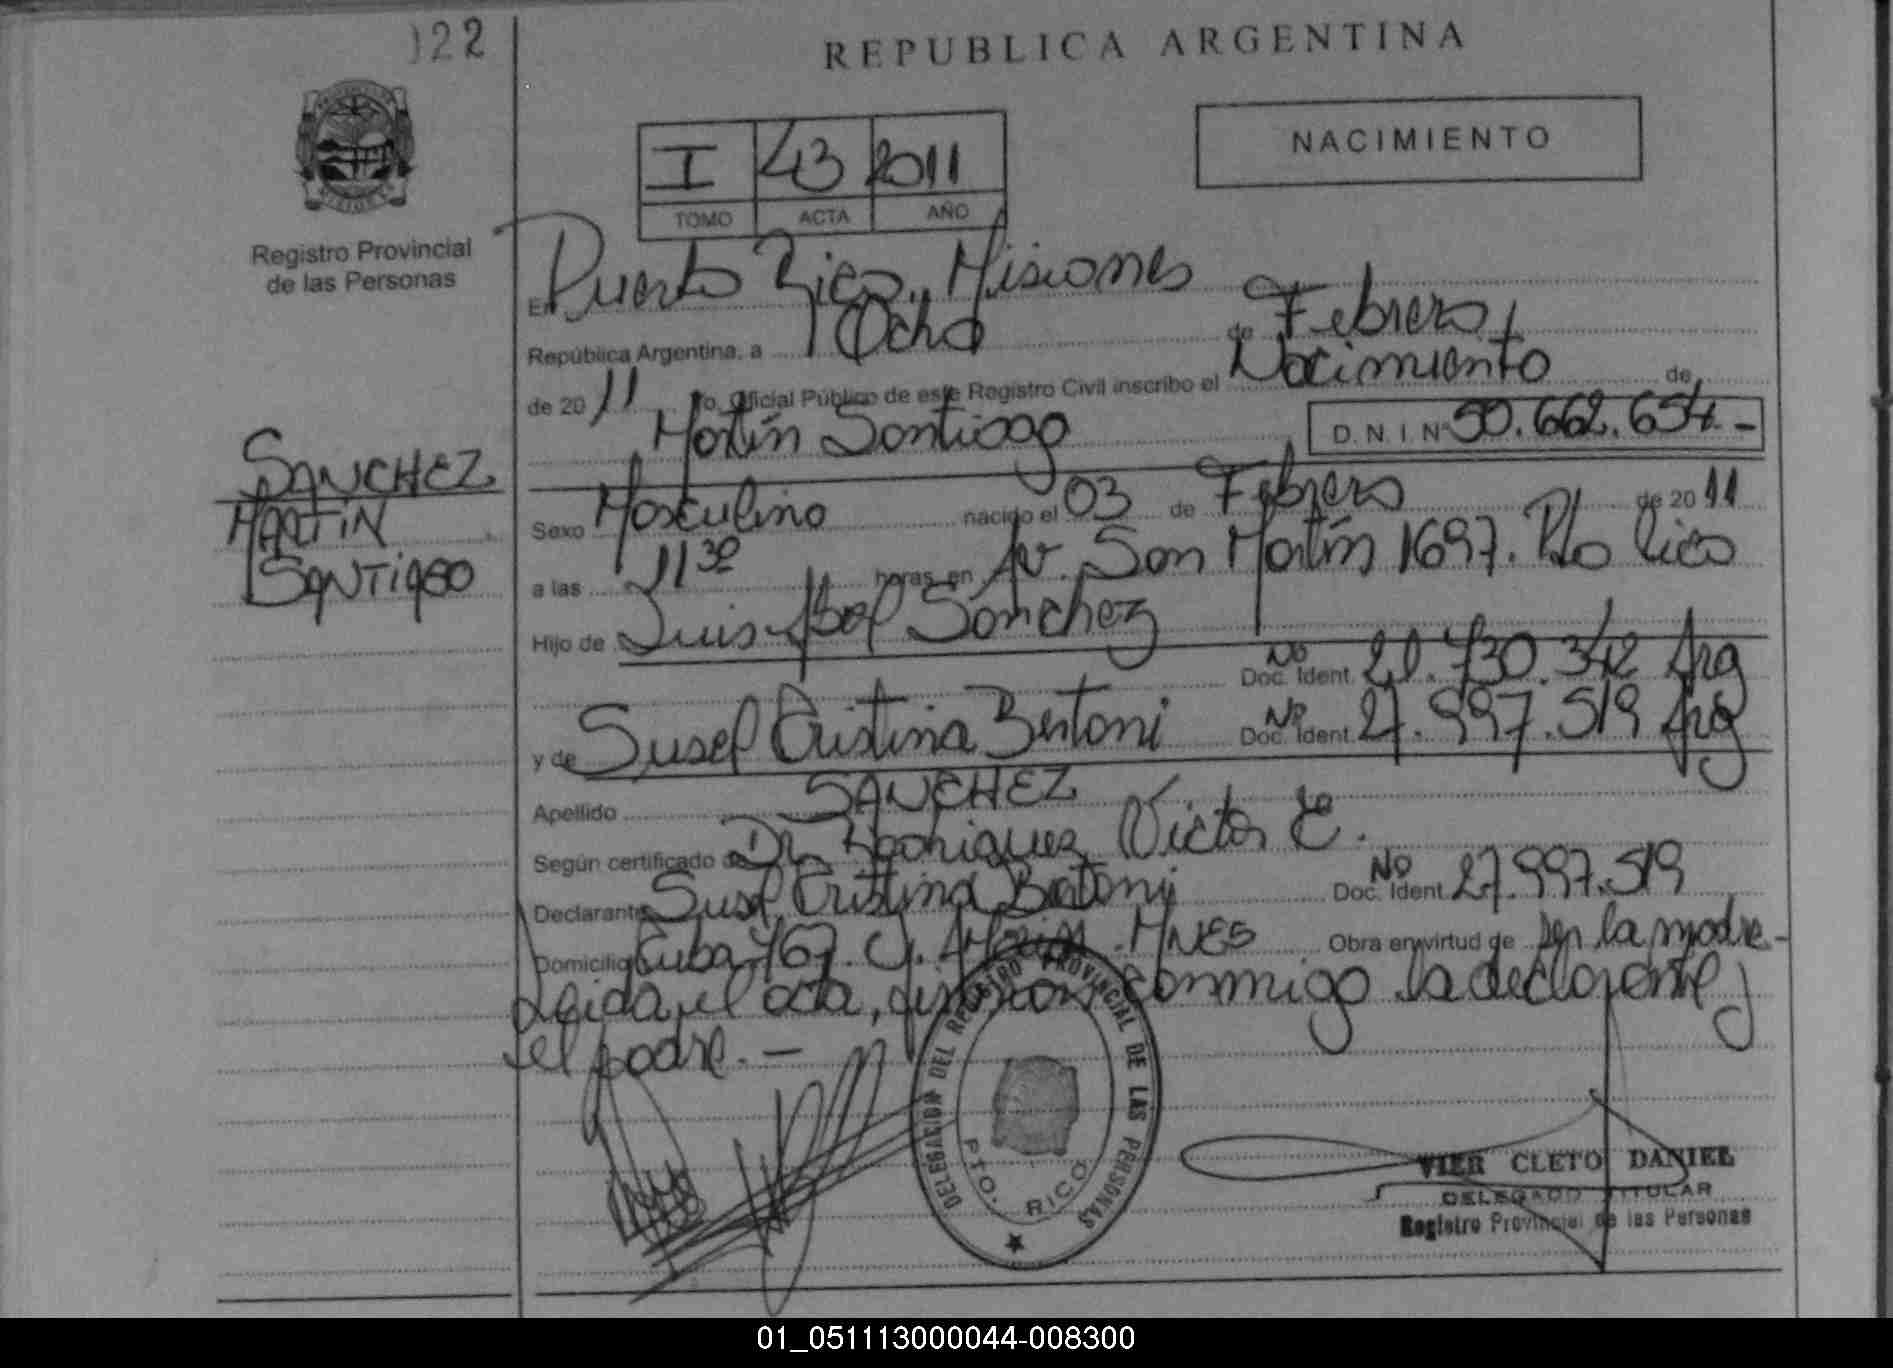 022
REPUBLICA ARGENTINA
I 43 2011
TOMO ACTA AÑO
NACIMIENTO
Registro Provincial
de las Personas
SANCHEZ
MARTIN
SANTIAGO
En Puerto Rico, Misiones
República Argentina, a Ocho de Febrero
de 2011 Yo, Oficial Público de este Registro Civil inscribo el Nacimiento de
Martín Santiago D.N.I. Nº 50.662.654.-
Sexo Masculino nacido el 03 de Febrero de 2011
a las 11³⁰ horas, en Av. San Martín 1697. Pto Rico
Hijo de Luis Abel Sánchez
Nº Doc. Ident. 21.730.342 Arg
y de Susel Cristina Bertoni Nº Doc. Ident. 27.997.519 Arg
Apellido SANCHEZ
Según certificado de Dr. Rodriguez Victor E.
Declarante Susel Cristina Bertoni Nº Doc. Ident. 27.997.519
Domicilio Cuba 767. MNES Obra en virtud de Ser la madre.-
Leida el acta, firman conmigo la declarante y
el padre. -
DELEGACION DEL REGISTRO PROVINCIAL DE LAS PERSONAS
PTO. RICO
VIER CLETO DANIEL
DELEGADO TITULAR
Registro Provincial de las Personas
01_051113000044-008300